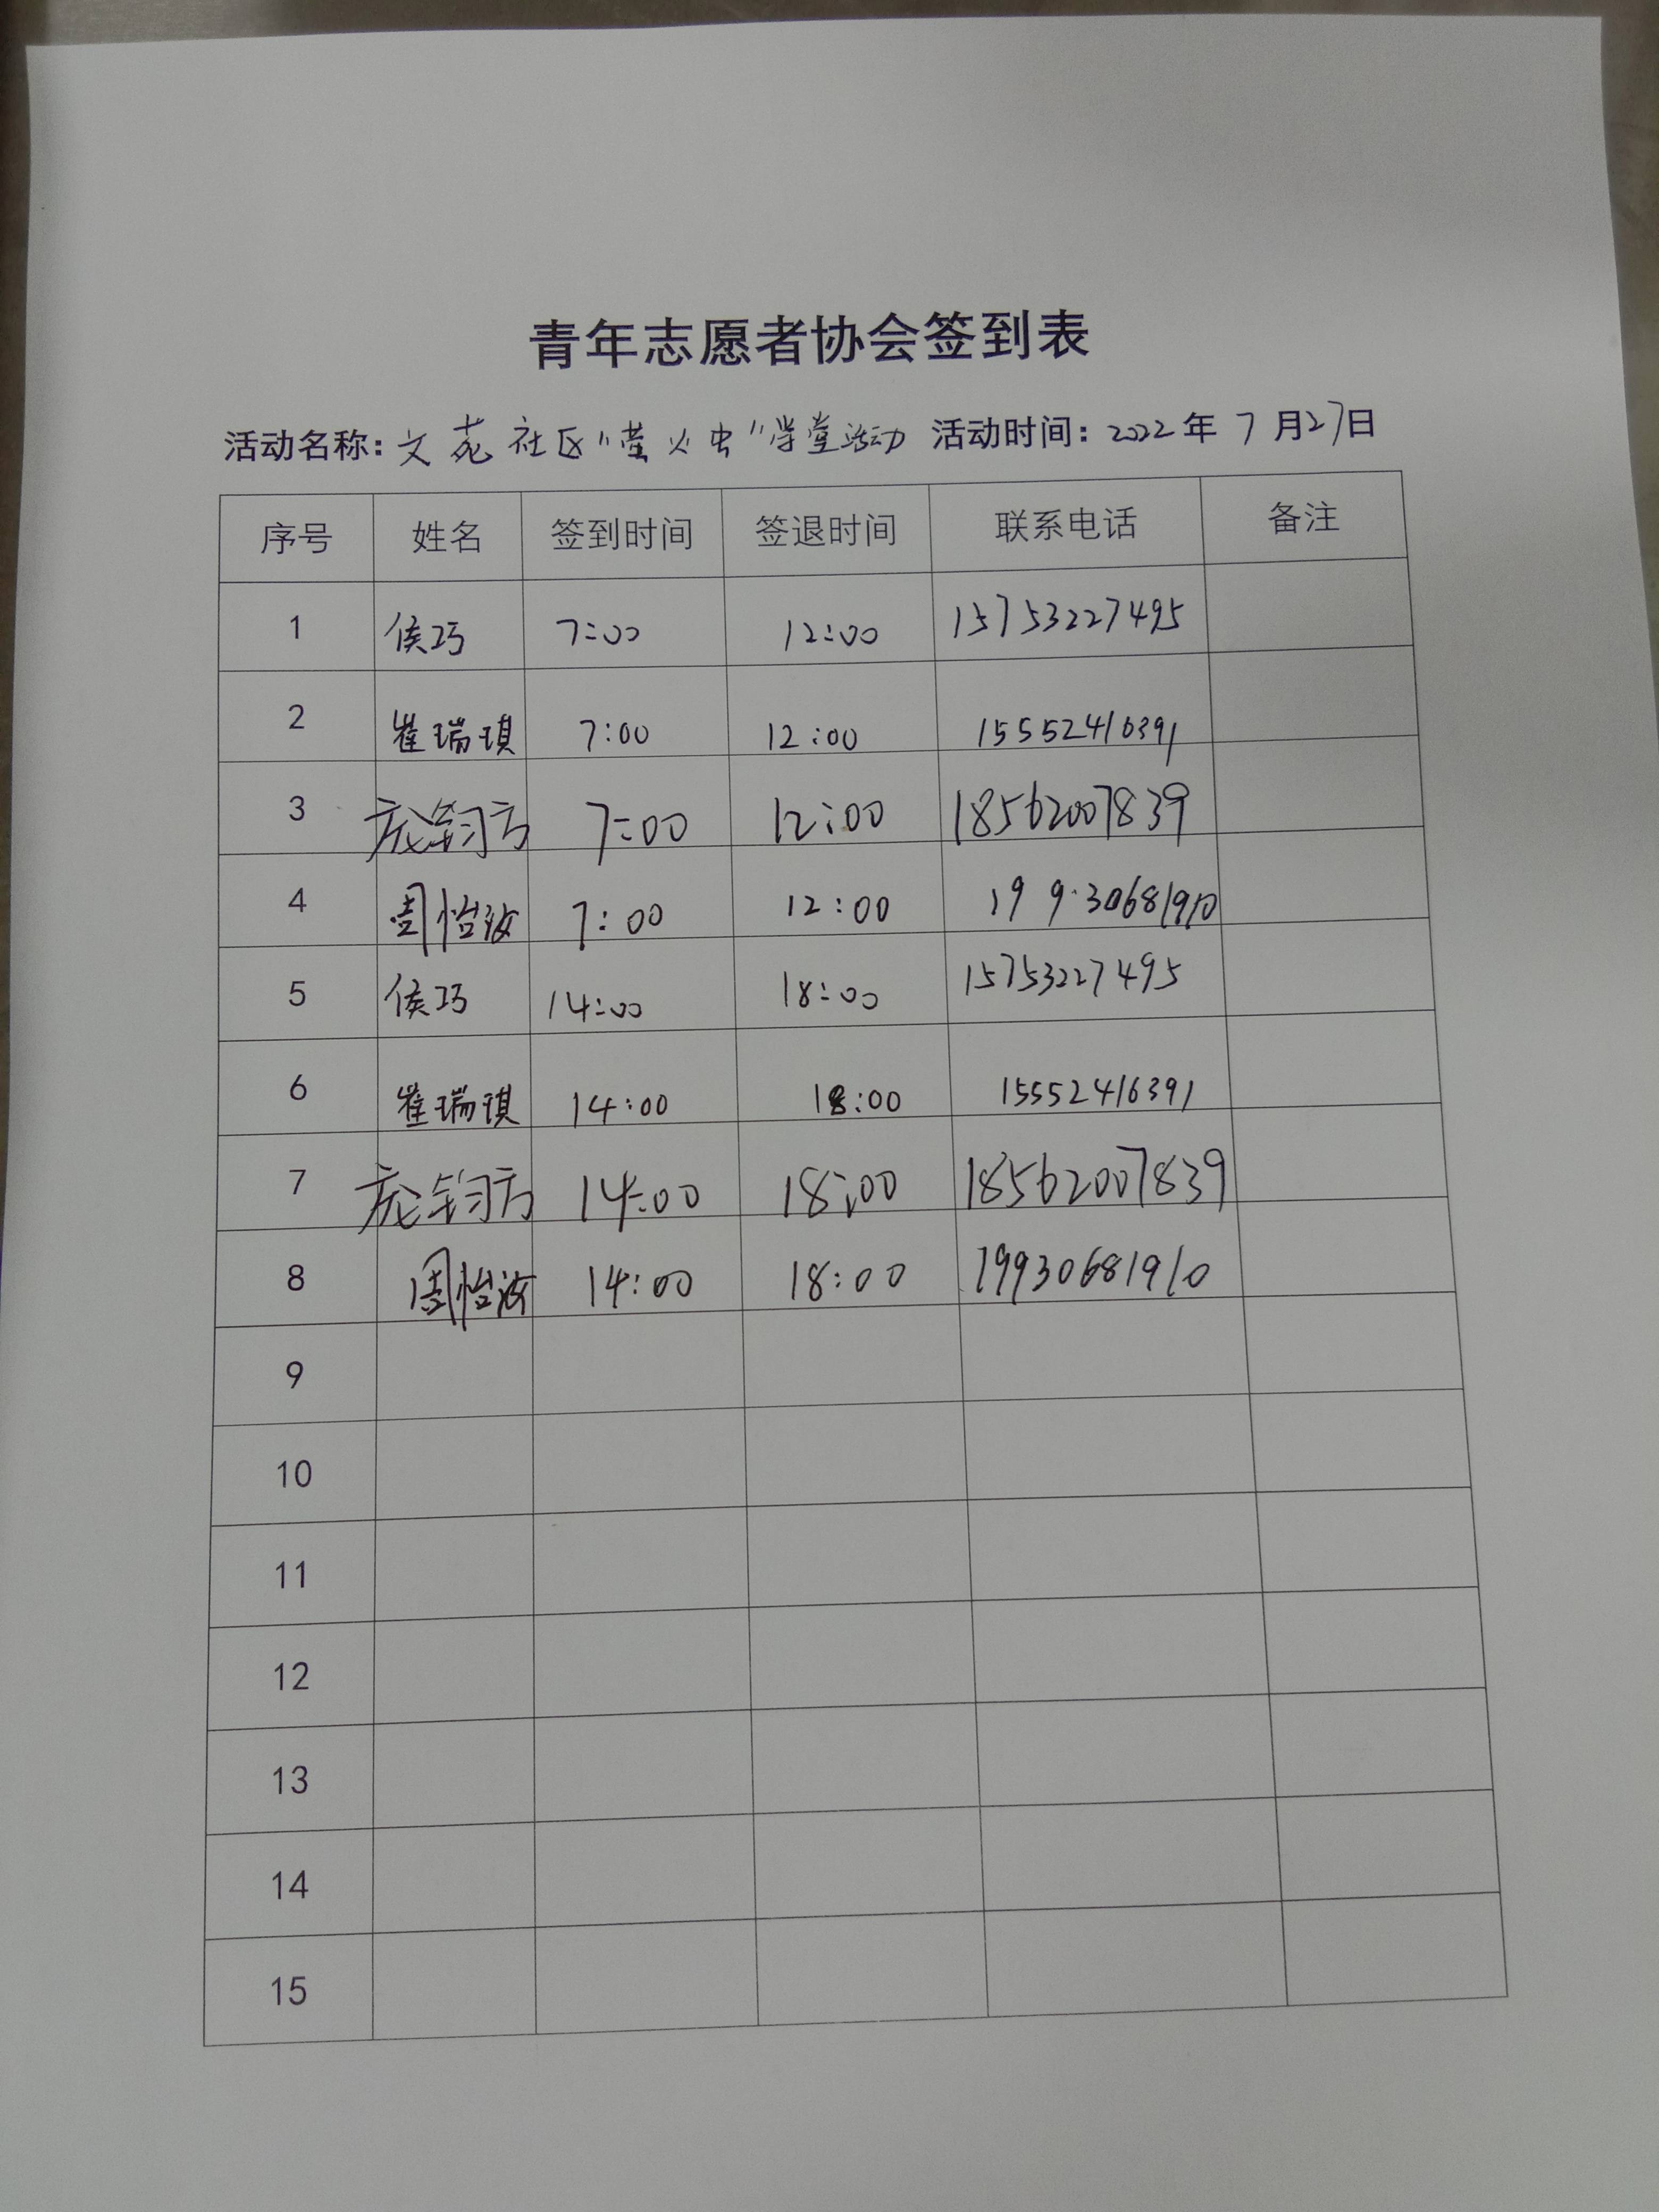 青年志愿者协会签到表
活动名称:文苑社区"萤火虫"学堂活动 活动时间:2022年7月27日
序号 姓名 签到时间 签退时间 联系电话 备注
1 侯巧 7:00 12:00 15753227495
2 崔瑞琪 7:00 12:00 15552416391
3 庞钧方 7:00 12:00 18562007839
4 周怡汝 7:00 12:00 19930681910
5 侯巧 14:00 18:00 15753227495
6 崔瑞琪 14:00 18:00 15552416391
7 庞钧方 14:00 18:00 18562007839
8 周怡汝 14:00 18:00 19930681910
9
10
11
12
13
14
15